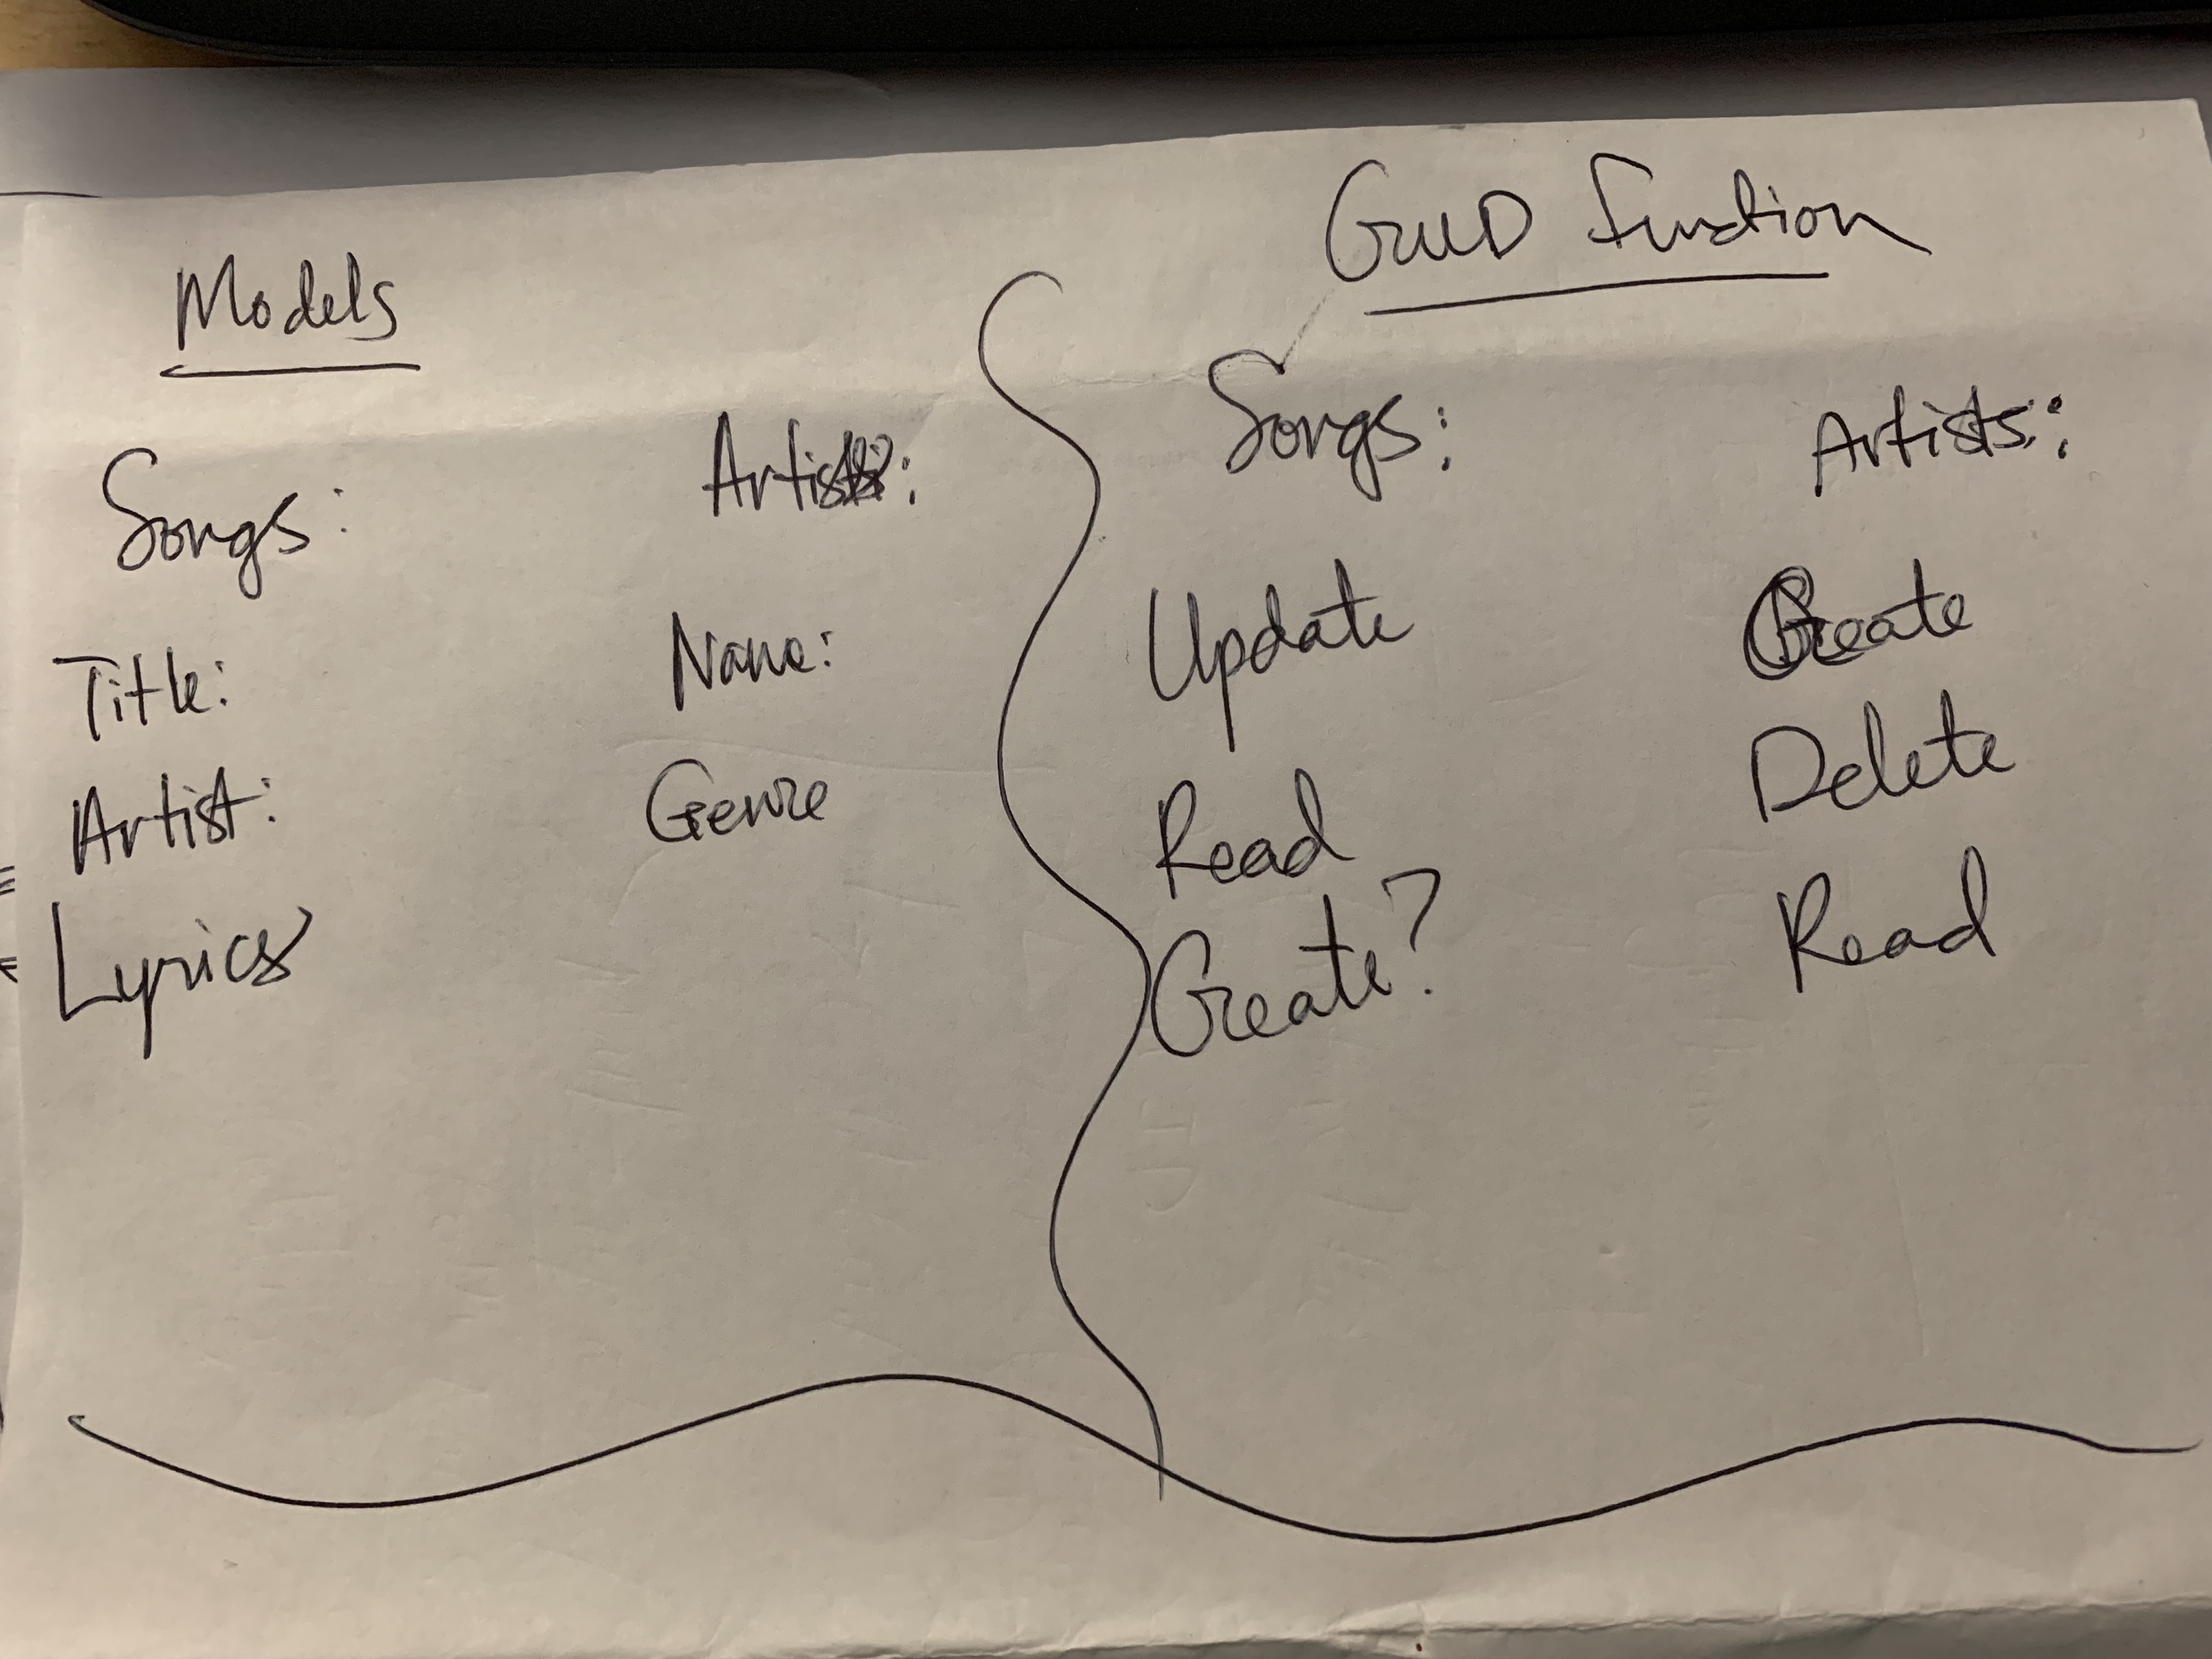 Models
Songs:
Title:
Artist:
Lyrics
Artists:
Name:
Genre
CRUD Function
Songs:
Update
Read
Create?
Artists:
Create
Delete
Read